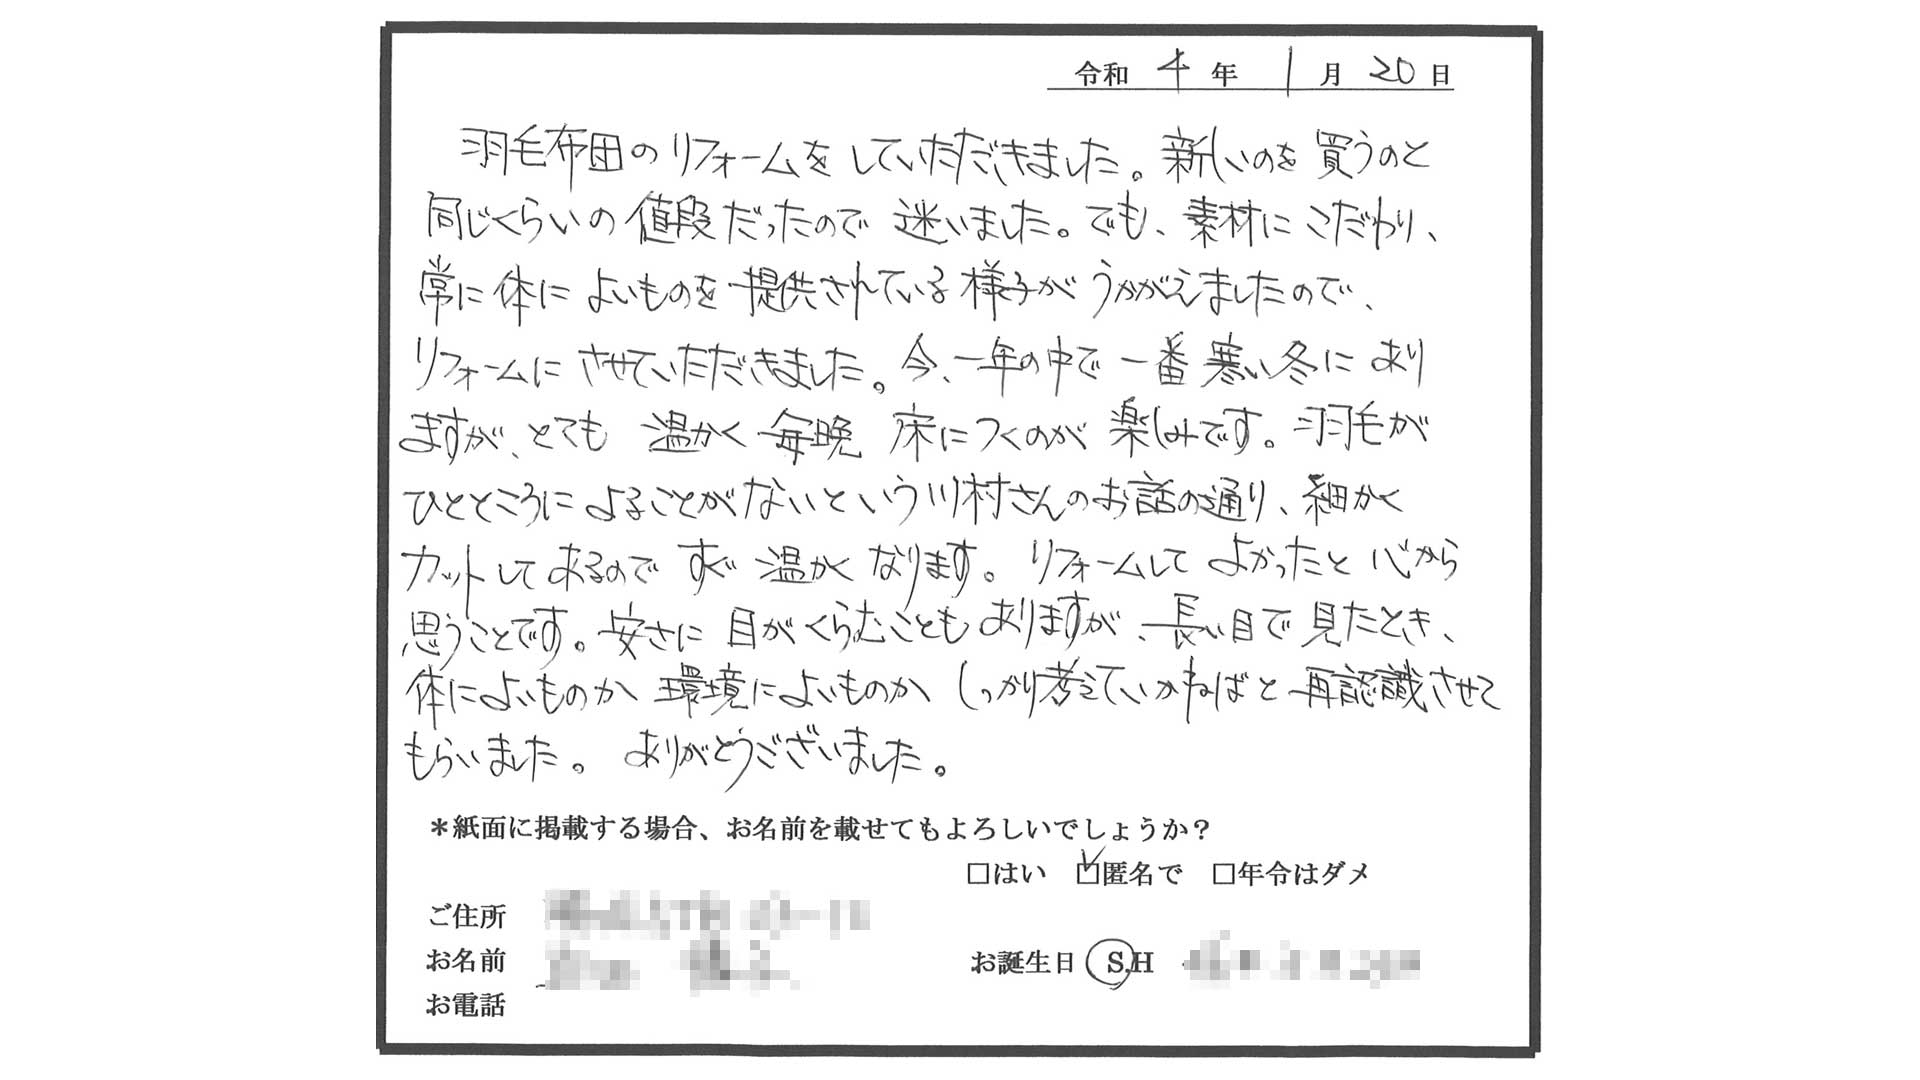 令和 4 年 1 月 20 日
羽毛布団のリフォームをしていただきました。新しいのを買うのと
同じくらいの値段だったので迷いました。でも、素材にこだわり、
常に体によいものを提供されている様子がうかがえましたので、
リフォームにさせていただきました。今、一年の中で一番寒い冬にあり
ますが、とても温かく毎晩床につくのが楽しみです。羽毛が
ひとところによることがないという川村さんのお話の通り、細かく
カットして来るのですぐ温かくなります。リフォームしてよかったと心から
思うことです。安さに目がくらむこともありますが、長い目で見たとき、
体によいものか環境によいものかしっかり考えていかねばと再認識させて
もらいました。ありがとうございました。
＊紙面に掲載する場合、お名前を載せてもよろしいでしょうか？
□はい ☑匿名で □年令はダメ
ご住所
お名前
お誕生日 S.H
お電話